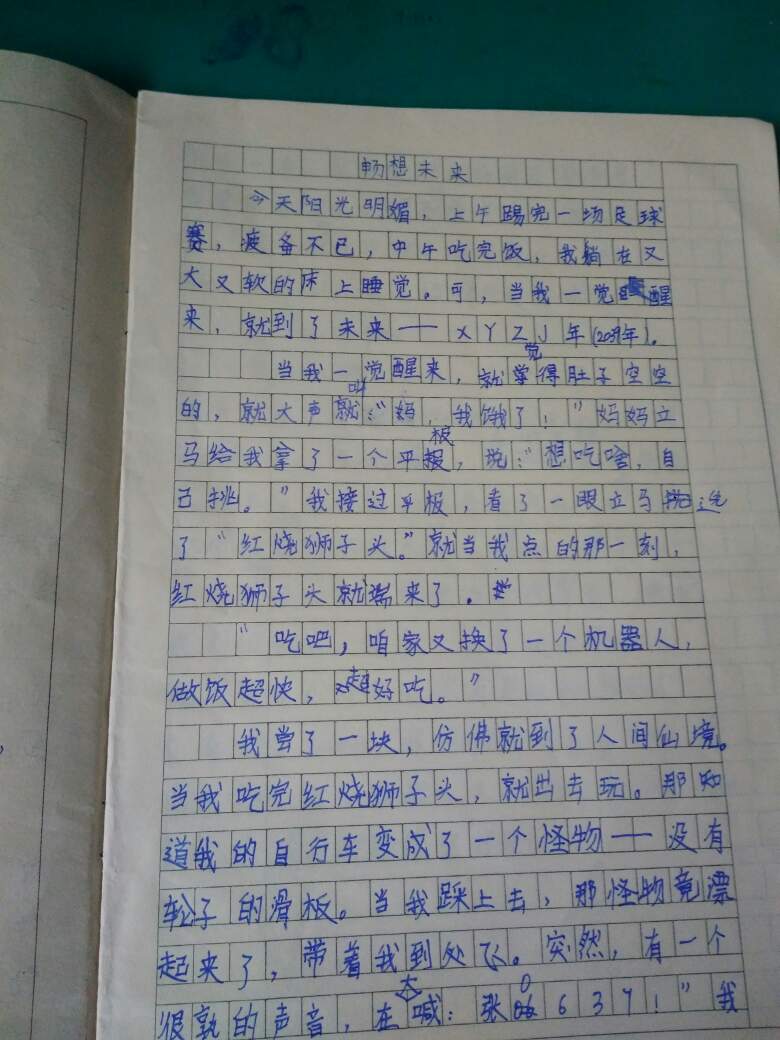 畅想未来
今天阳光明媚，上午踢完一场足球
赛，疲备不已，中午吃完饭，我躺在又
大又软的床上睡觉。可，当我一觉醒
来，就到了未来——XYZJ年(2039年)。
当我一觉醒来，就觉得肚子空空
的，就大声叫：“妈，我饿了！”妈妈立
马给我拿了一个平板，说：“想吃啥，自
己挑。”我接过平板，看了一眼立马选
了“红烧狮子头。”就当我点的那一刻，
红烧狮子头就端来了。
“吃吧，咱家又换了一个机器人，
做饭超快，超好吃。”
我尝了一块，仿佛就到了人间仙境。
当我吃完红烧狮子头，就出去玩。那知
道我的自行车变成了一个怪物——没有
轮子的滑板。当我踩上去，那怪物竟漂
起来了，带着我到处飞。突然，有一个
很孰的声音，在大喊：张0637！”我